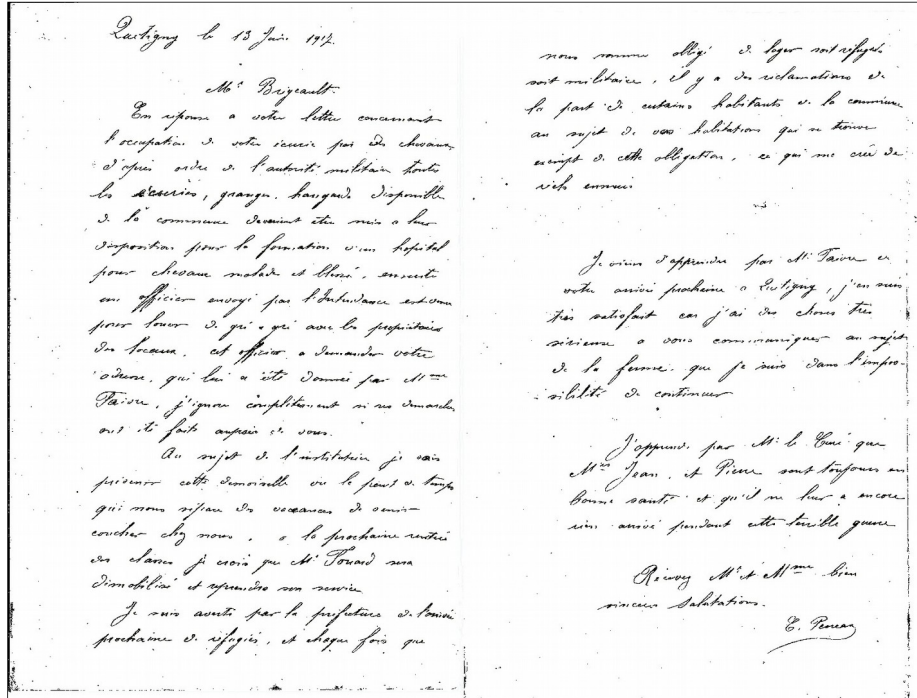 le 13 Juin 1917.
Mr Brigeault.
En réponse a votre lettre concernant
l'occupation de votre écurie par des chevaux,
d'après ordre de l'autorité militaire toutes
les écuries, granges, hangards disponible
de la commune devaient etre mis a leur
disposition pour la formation d'un hopital
pour chevaux malade et blessé, ensuite
un officier envoyé par l'Intendance est venu
pour louer de gré a gré avec les propriétaires
des locaux, cet officier a demander votre
adresse, qui lui a été donnée par Mme
Faivre, j'ignore complètement si ses demarches
ont été faits auprès de vous.
Au sujet de l'institutrice je vais
prévenir cette demoiselle vu le peu de temps
qui nous sépare des vacances de venir
coucher chez nous, a la prochaine rentrée
des classes je crois que Mr sera
démobilisé et reprendra son service
Je suis averti par la préfecture de l'arrivée
prochaine de réfugiés, et chaque fois que
nous somme obligé de loger soit réfugiés
soit militaire, il y a des réclamations de
la part de certains habitants de la commune
au sujet de vos habitations qui se trouve
exempt de cette obligation, ce qui me crée de
réels ennuis
Je viens d'apprendre par Mr Faivre
votre arrivée prochaine a j'en suis
très satisfait car j'ai des choses très
sérieuse a vous communiquer au sujet
de la ferme que je suis dans l'impos-
sibilité de continuer
J'apprends par Mr le Curé que
Mrs Jean et Pierre sont toujours en
bonne santé et qu'il ne leur a encore
rien arrivé pendant cette terrible guerre
Recevez Mr et Mme bien
sincères salutations.